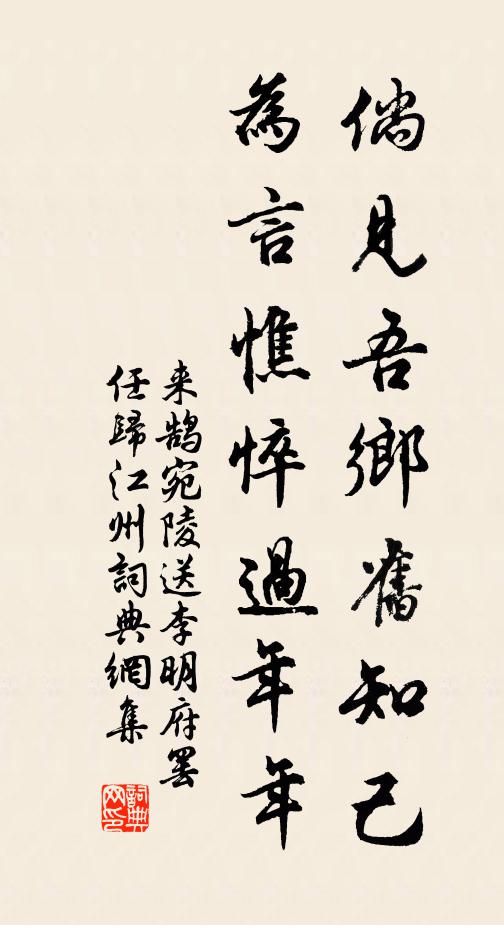 倘見吾鄉舊知己
為言憔悴過年年
来鹄宛陵送李明府罢
任歸江州詞典網集
詞典网印